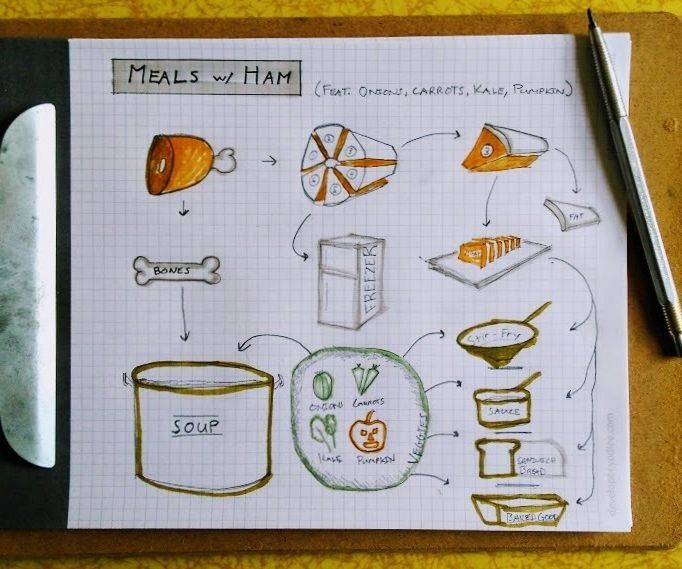 MEALS w/ HAM
(FEAT. ONIONS, CARROTS, KALE, PUMPKIN)
3
FAT
BONES
FREEZER
STIR-FRY
SOUP
ONIONS
CARROTS
KALE
PUMPKIN
VEGGIES
SAUCE
SANDWICH
BREAD
BAKED GOOD